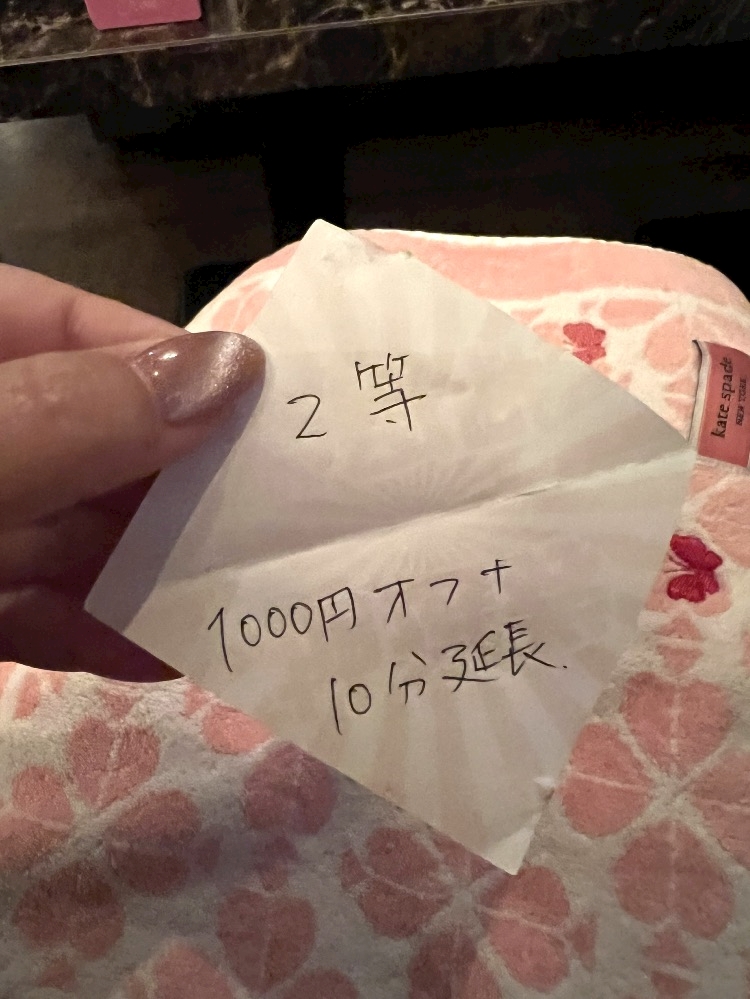 2等
1000円オフ+
10分延長.
kate spade
NEW YORK